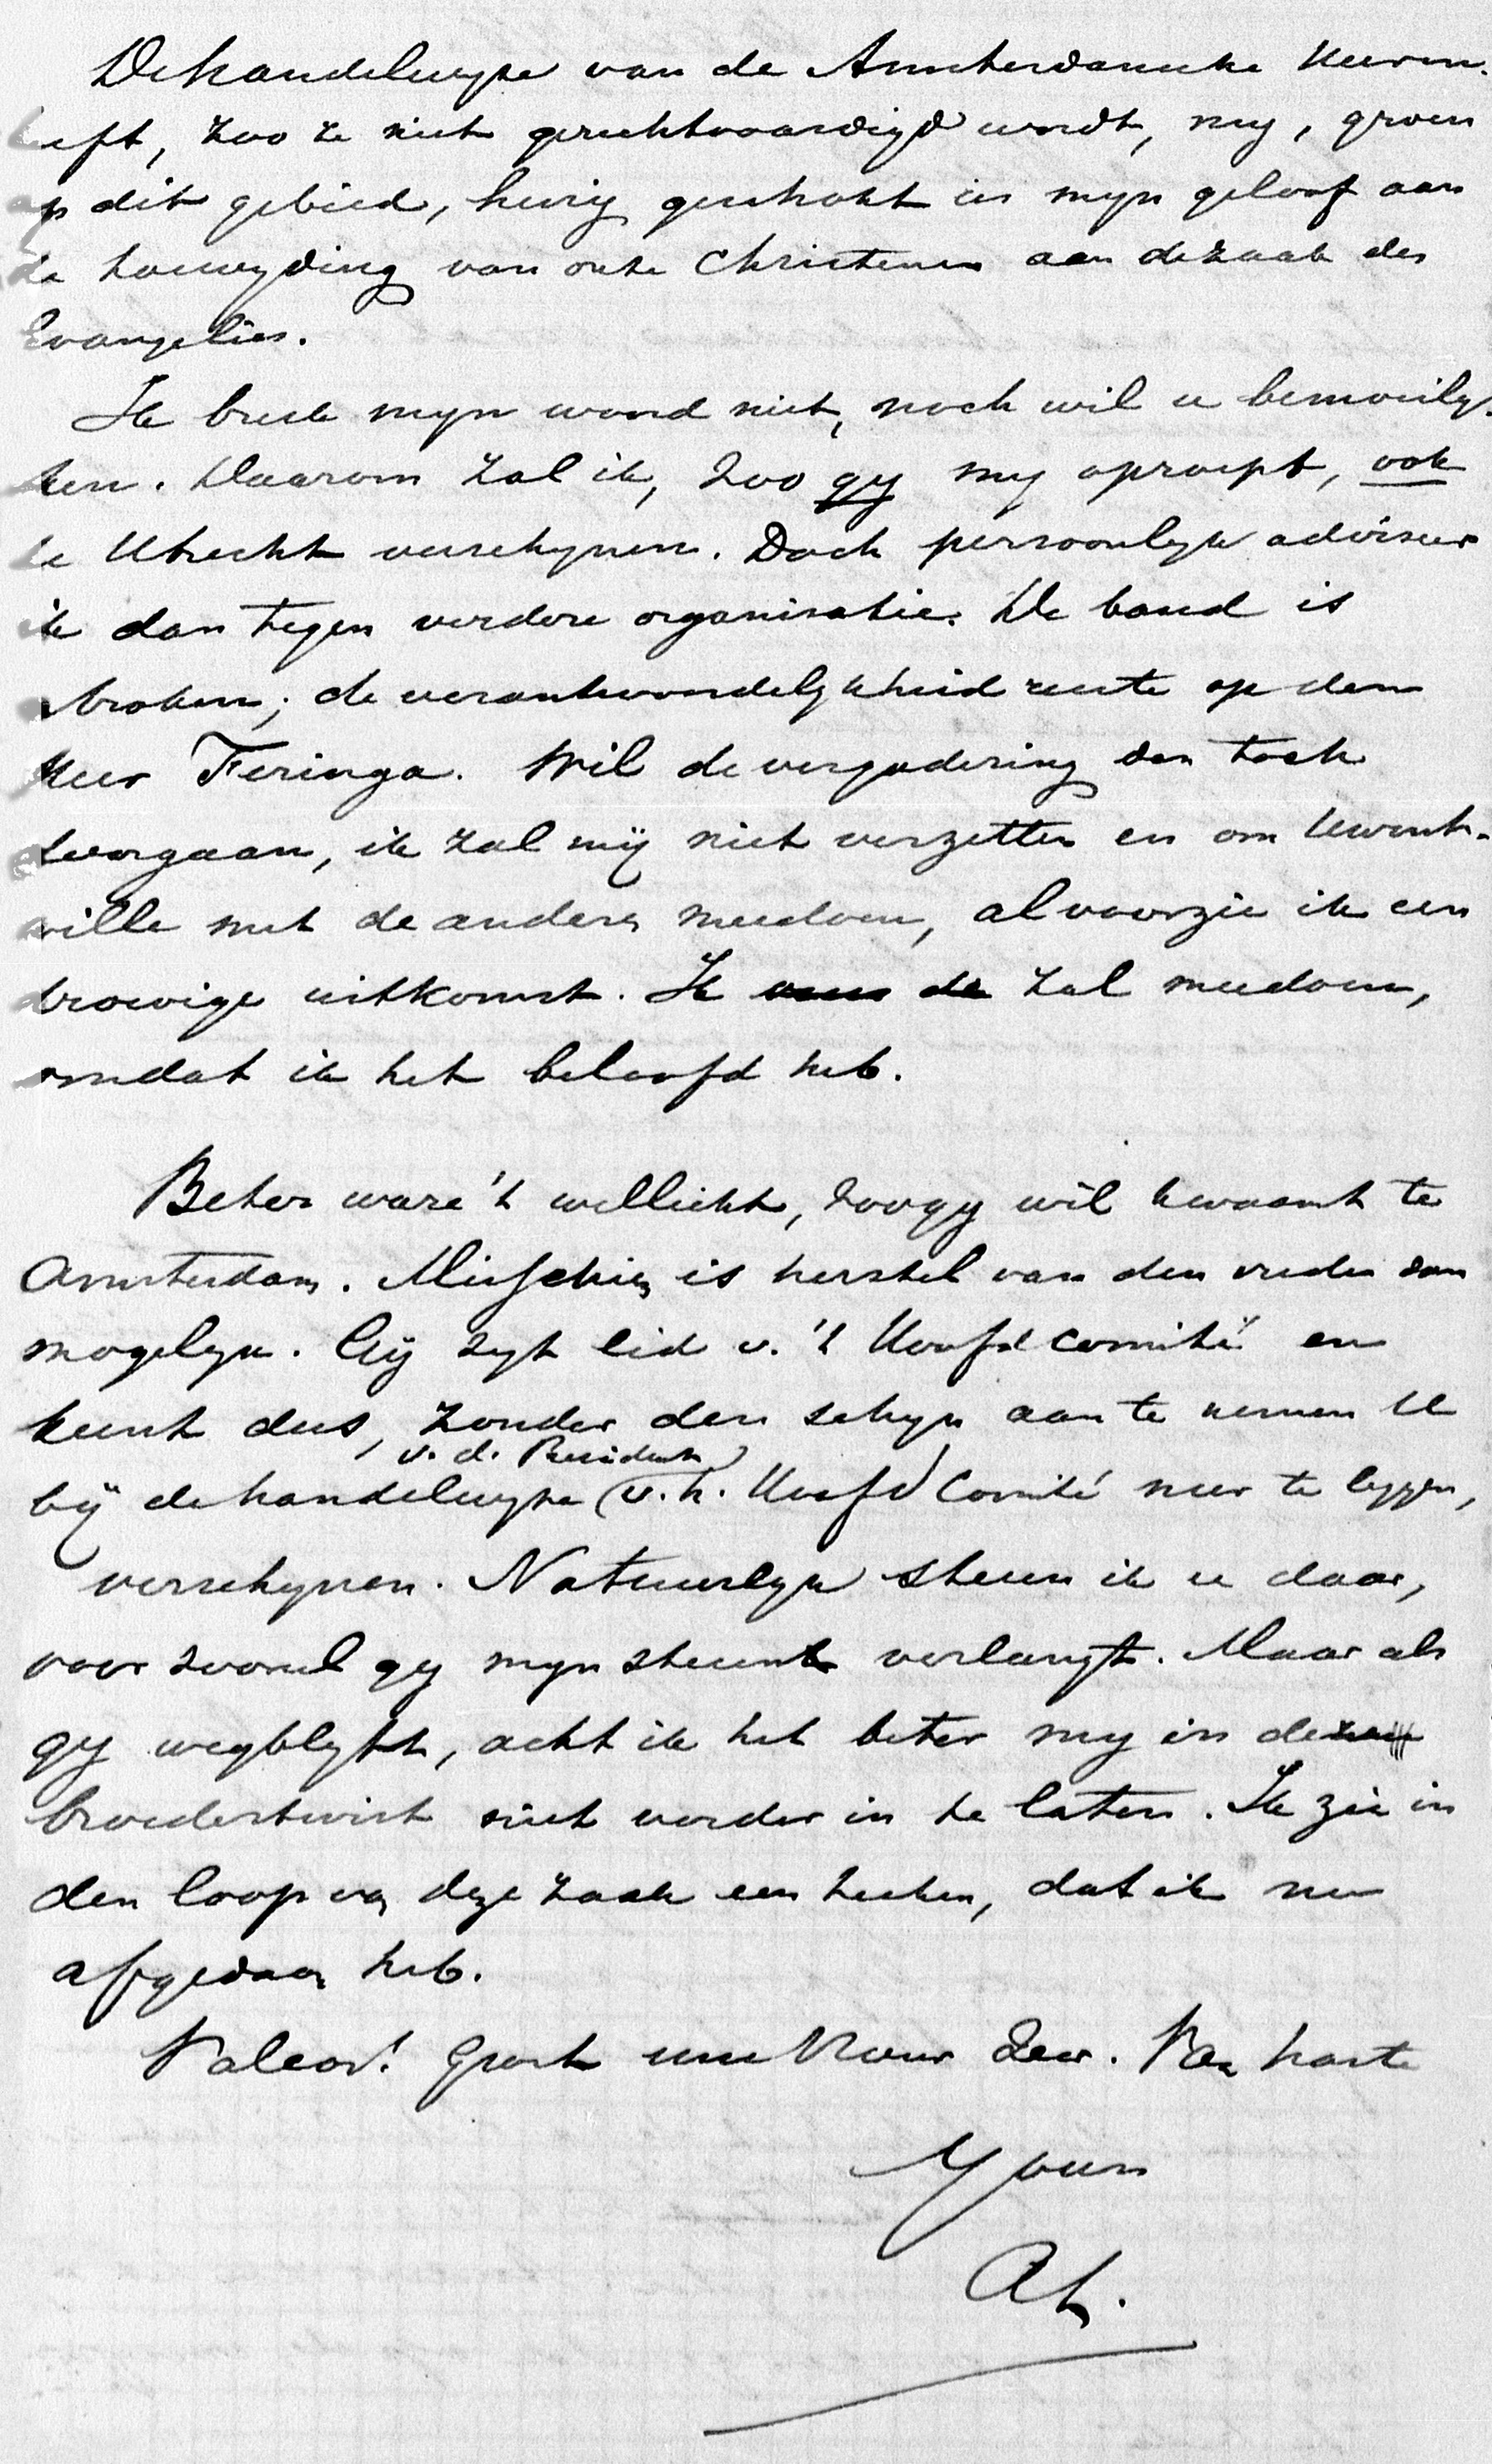 De handelwyze van de Amsterdamsche Heeren
heeft, zoo ze niet gerechtvaardigd wordt, my, groen
op dit gebied, hevig geschokt in myn geloof aan
de toewyding van onze Christenen aan de zaak des
Evangelies.
Ik breek myn woord niet, noch wil u bemoeily-
ken. Daarom zal ik, zoo gy my oproept, ook
te Utrecht verschynen. Doch persoonlyk adviseer
ik dan tegen verdere organisatie. De band is
gebroken; de verantwoordelykheid ruste op den
Heer Feringa. Wil de vergadering dan toch
doorgaan, ik zal mij niet verzetten en om Uwent-
wille met de anderen meedoen, al voorzie ik een
droevige uitkomst. Ik zal meedoen,
omdat ik het beloofd heb.
Beter ware 't wellicht, zoo gy wel kwaamt te
Amsterdam. Misschien is herstel van den vrede dan
mogelyk. Gij zyt lid v. 't Hoofdcomité en
kunt dus, zonder den schyn aan te nemen U
v. d. President
bij de handelwyze (v. h. Hoofd Comité neer te leggen,
verschynen. Natuurlyk steun ik u daar,
voor zooveel gy myn steun verlangt. Maar als
gy wegblyft, acht ik het beter my in de
broedertwist niet verder in te laten. Ik zie in
den loop van deze zaak een teeken, dat ik nu
afgedaan heb.
Valeas! Groet uwe Vrouw zeer. Van harte
Yours